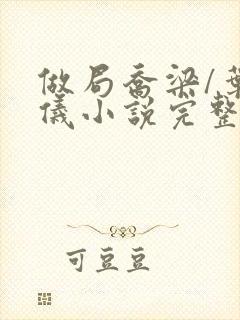 做局乔梁/葉
儀小說完整
可豆豆